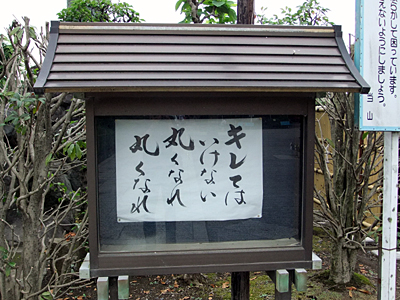 キレては
いけない
丸くなれ
丸くなれ
らかして困っています。
えないようにしましょう。
当山